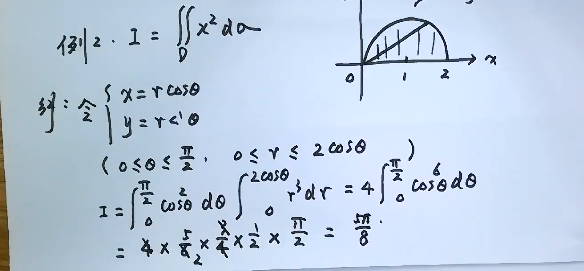 例2. I = ∬_D x² dσ
x
0 1 2
解: 令 { x = r cosθ
y = r<'θ
( 0 ≤ θ ≤ π/2, 0 ≤ r ≤ 2cosθ )
I = ∫_0^{π/2} cos²θ dθ ∫_0^{2cosθ} r³ dr = 4 ∫_0^{π/2} cos⁶θ dθ
= 4 × 5/6 × 3/4 × 1/2 × π/2 = 5π/8.